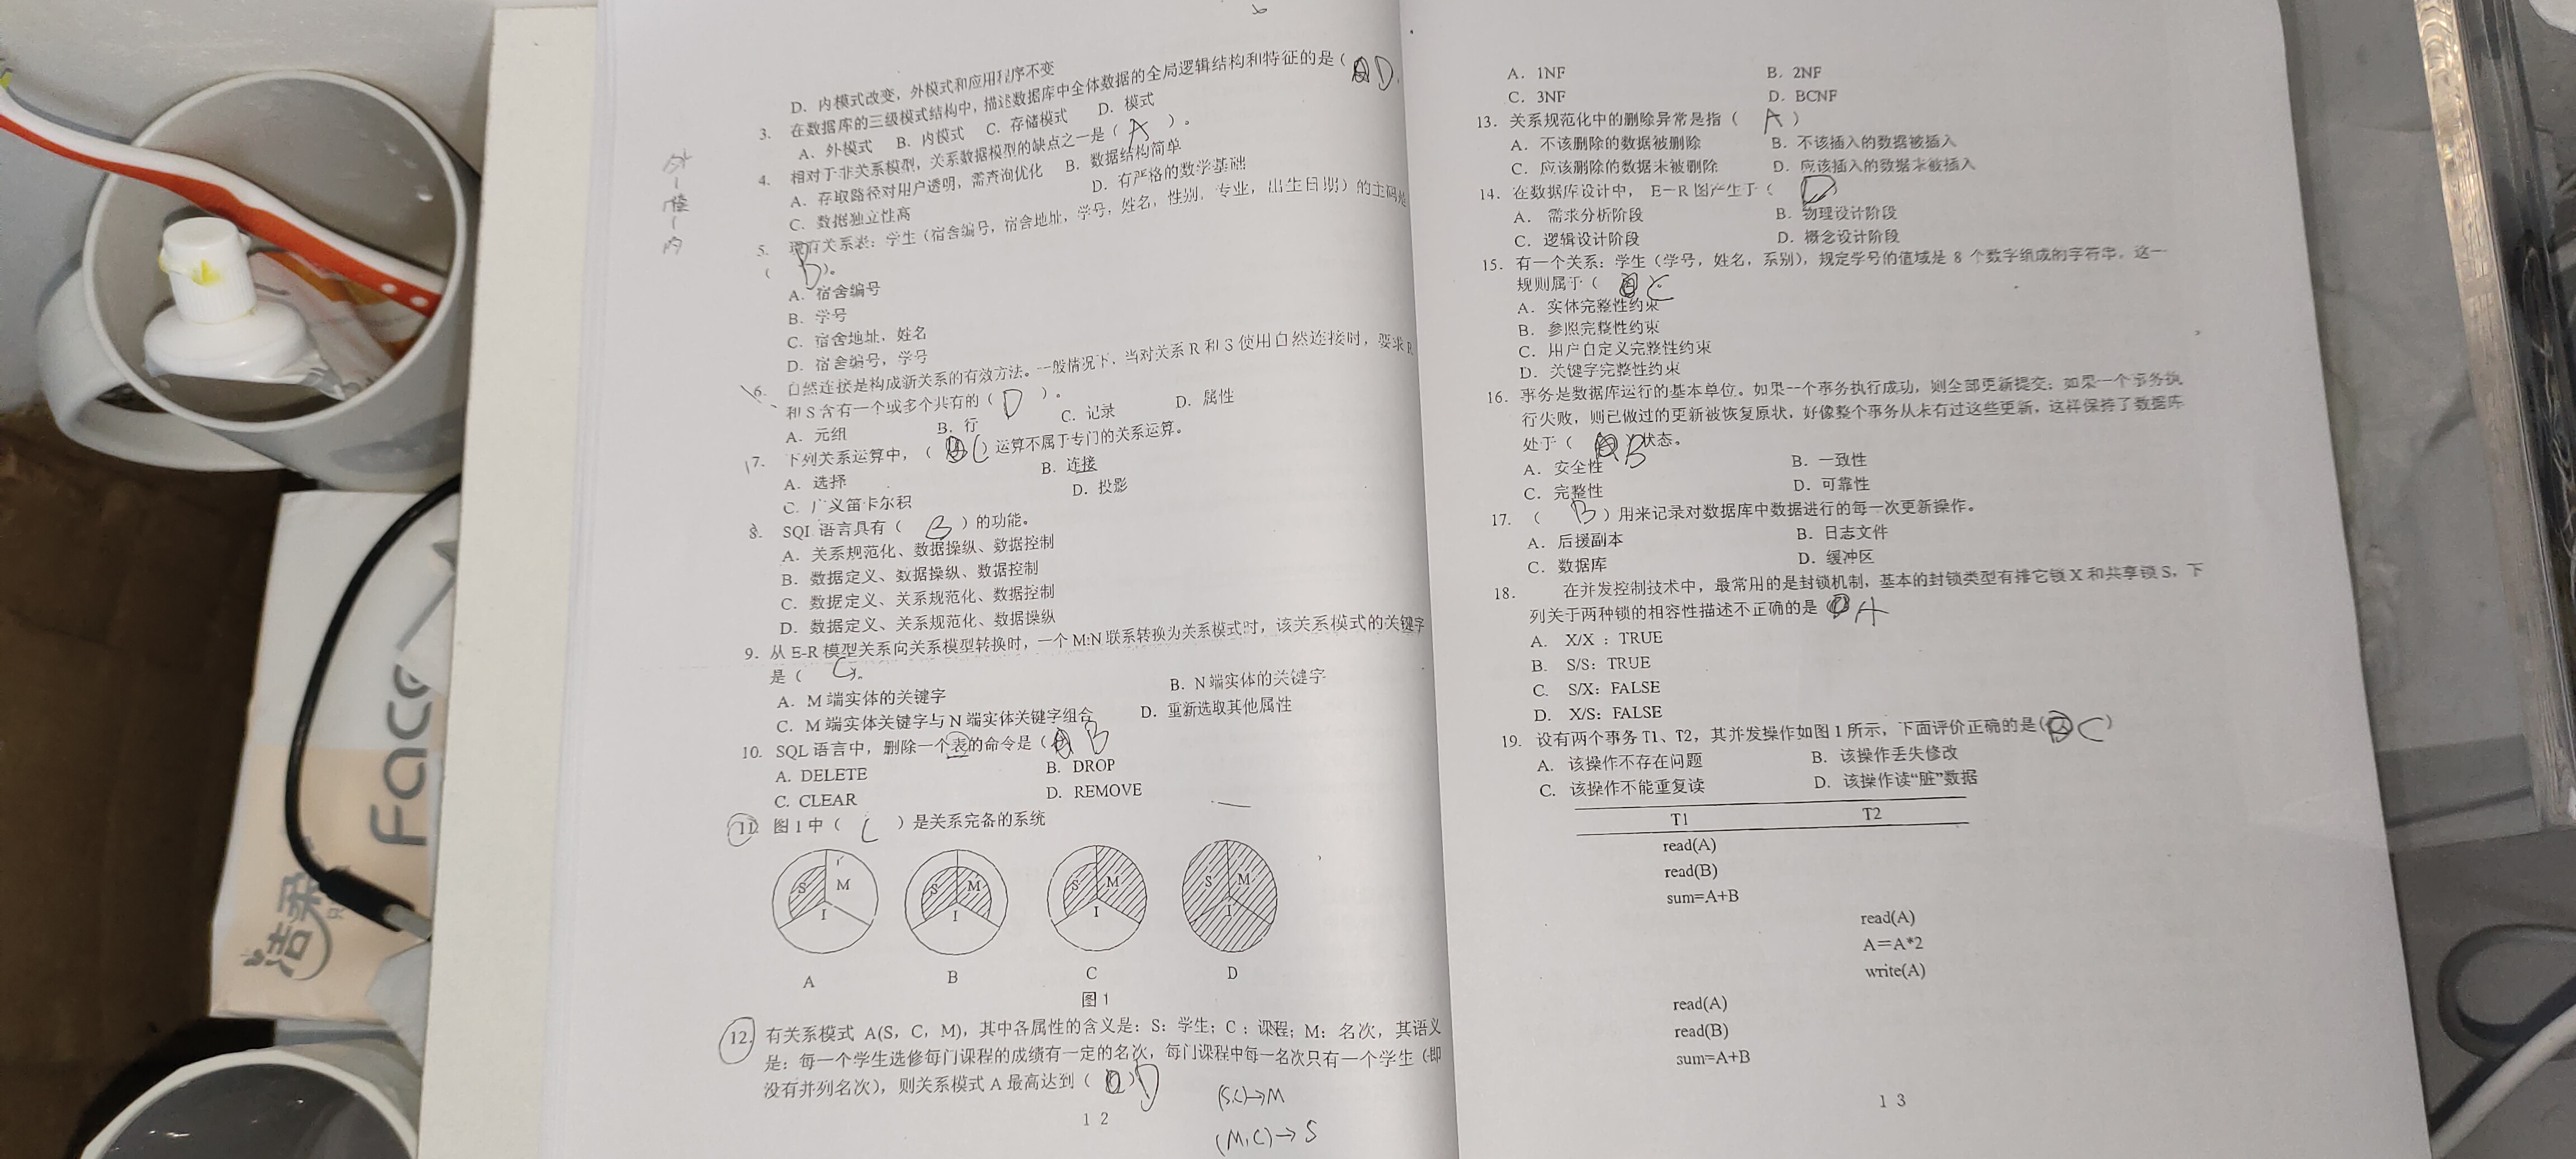 D. 内模式改变，外模式和应用程序不变
3. 在数据库的三级模式结构中，描述数据库中全体数据的全局逻辑结构和特征的是（ D
A. 外模式 B. 内模式 C. 存储模式 D. 模式
4. 相对于非关系模型，关系数据模型的缺点之一是（ A ）。
A. 存取路径对用户透明，需查询优化 B. 数据结构简单
C. 数据独立性高 D. 有严格的数学基础
5. 现有关系表：学生（宿舍编号，宿舍地址，学号，姓名，性别，专业，出生日期）的主码是
（ B ）。
A. 宿舍编号
B. 学号
C. 宿舍地址，姓名
D. 宿舍编号，学号
6. 自然连接是构成新关系的有效方法。一般情况下，当对关系 R 和 S 使用自然连接时，要求 R
和 S 含有一个或多个共有的（ D ）。
A. 元组 B. 行 C. 记录 D. 属性
7. 下列关系运算中，（ C ）运算不属于专门的关系运算。
A. 选择 B. 连接
C. 广义笛卡尔积 D. 投影
8. SQL 语言具有（ B ）的功能。
A. 关系规范化、数据操纵、数据控制
B. 数据定义、数据操纵、数据控制
C. 数据定义、关系规范化、数据控制
D. 数据定义、关系规范化、数据操纵
9. 从 E-R 模型关系向关系模型转换时，一个 M:N 联系转换为关系模式时，该关系模式的关键字
是（ C ）。
A. M 端实体的关键字 B. N 端实体的关键字
C. M 端实体关键字与 N 端实体关键字组合 D. 重新选取其他属性
10. SQL 语言中，删除一个表的命令是（ B
A. DELETE B. DROP
C. CLEAR D. REMOVE
11. 图 1 中（ C ）是关系完备的系统
S M I
S M I
S M I
S M I
A B C D
图 1
12. 有关系模式 A(S，C，M)，其中各属性的含义是：S：学生；C：课程；M：名次，其语义
是：每一个学生选修每门课程的成绩有一定的名次，每门课程中每一名次只有一个学生（即
没有并列名次），则关系模式 A 最高达到（ ）D
(S,C)→M
(M,C)→S
1 2
外
模
内
A. 1NF B. 2NF
C. 3NF D. BCNF
13. 关系规范化中的删除异常是指（ A ）
A. 不该删除的数据被删除 B. 不该插入的数据被插入
C. 应该删除的数据未被删除 D. 应该插入的数据未被插入
14. 在数据库设计中， E－R 图产生于（ D
A. 需求分析阶段 B. 物理设计阶段
C. 逻辑设计阶段 D. 概念设计阶段
15. 有一个关系：学生（学号，姓名，系别），规定学号的值域是 8 个数字组成的字符串，这一
规则属于（ C
A. 实体完整性约束
B. 参照完整性约束
C. 用户自定义完整性约束
D. 关键字完整性约束
16. 事务是数据库运行的基本单位。如果一个事务执行成功，则全部更新提交；如果一个事务执
行失败，则已做过的更新被恢复原状，好像整个事务从未有过这些更新，这样保持了数据库
处于（ B ）状态。
A. 安全性 B. 一致性
C. 完整性 D. 可靠性
17. （ B ）用来记录对数据库中数据进行的每一次更新操作。
A. 后援副本 B. 日志文件
C. 数据库 D. 缓冲区
18. 在并发控制技术中，最常用的是封锁机制，基本的封锁类型有排它锁 X 和共享锁 S，下
列关于两种锁的相容性描述不正确的是 A
A. X/X ：TRUE
B. S/S：TRUE
C. S/X：FALSE
D. X/S：FALSE
19. 设有两个事务 T1、T2，其并发操作如图 1 所示，下面评价正确的是( C )
A. 该操作不存在问题 B. 该操作丢失修改
C. 该操作不能重复读 D. 该操作读“脏”数据
T1 T2
read(A)
read(B)
sum=A+B
read(A)
A＝A*2
write(A)
read(A)
read(B)
sum=A+B
1 3
Face
洁柔